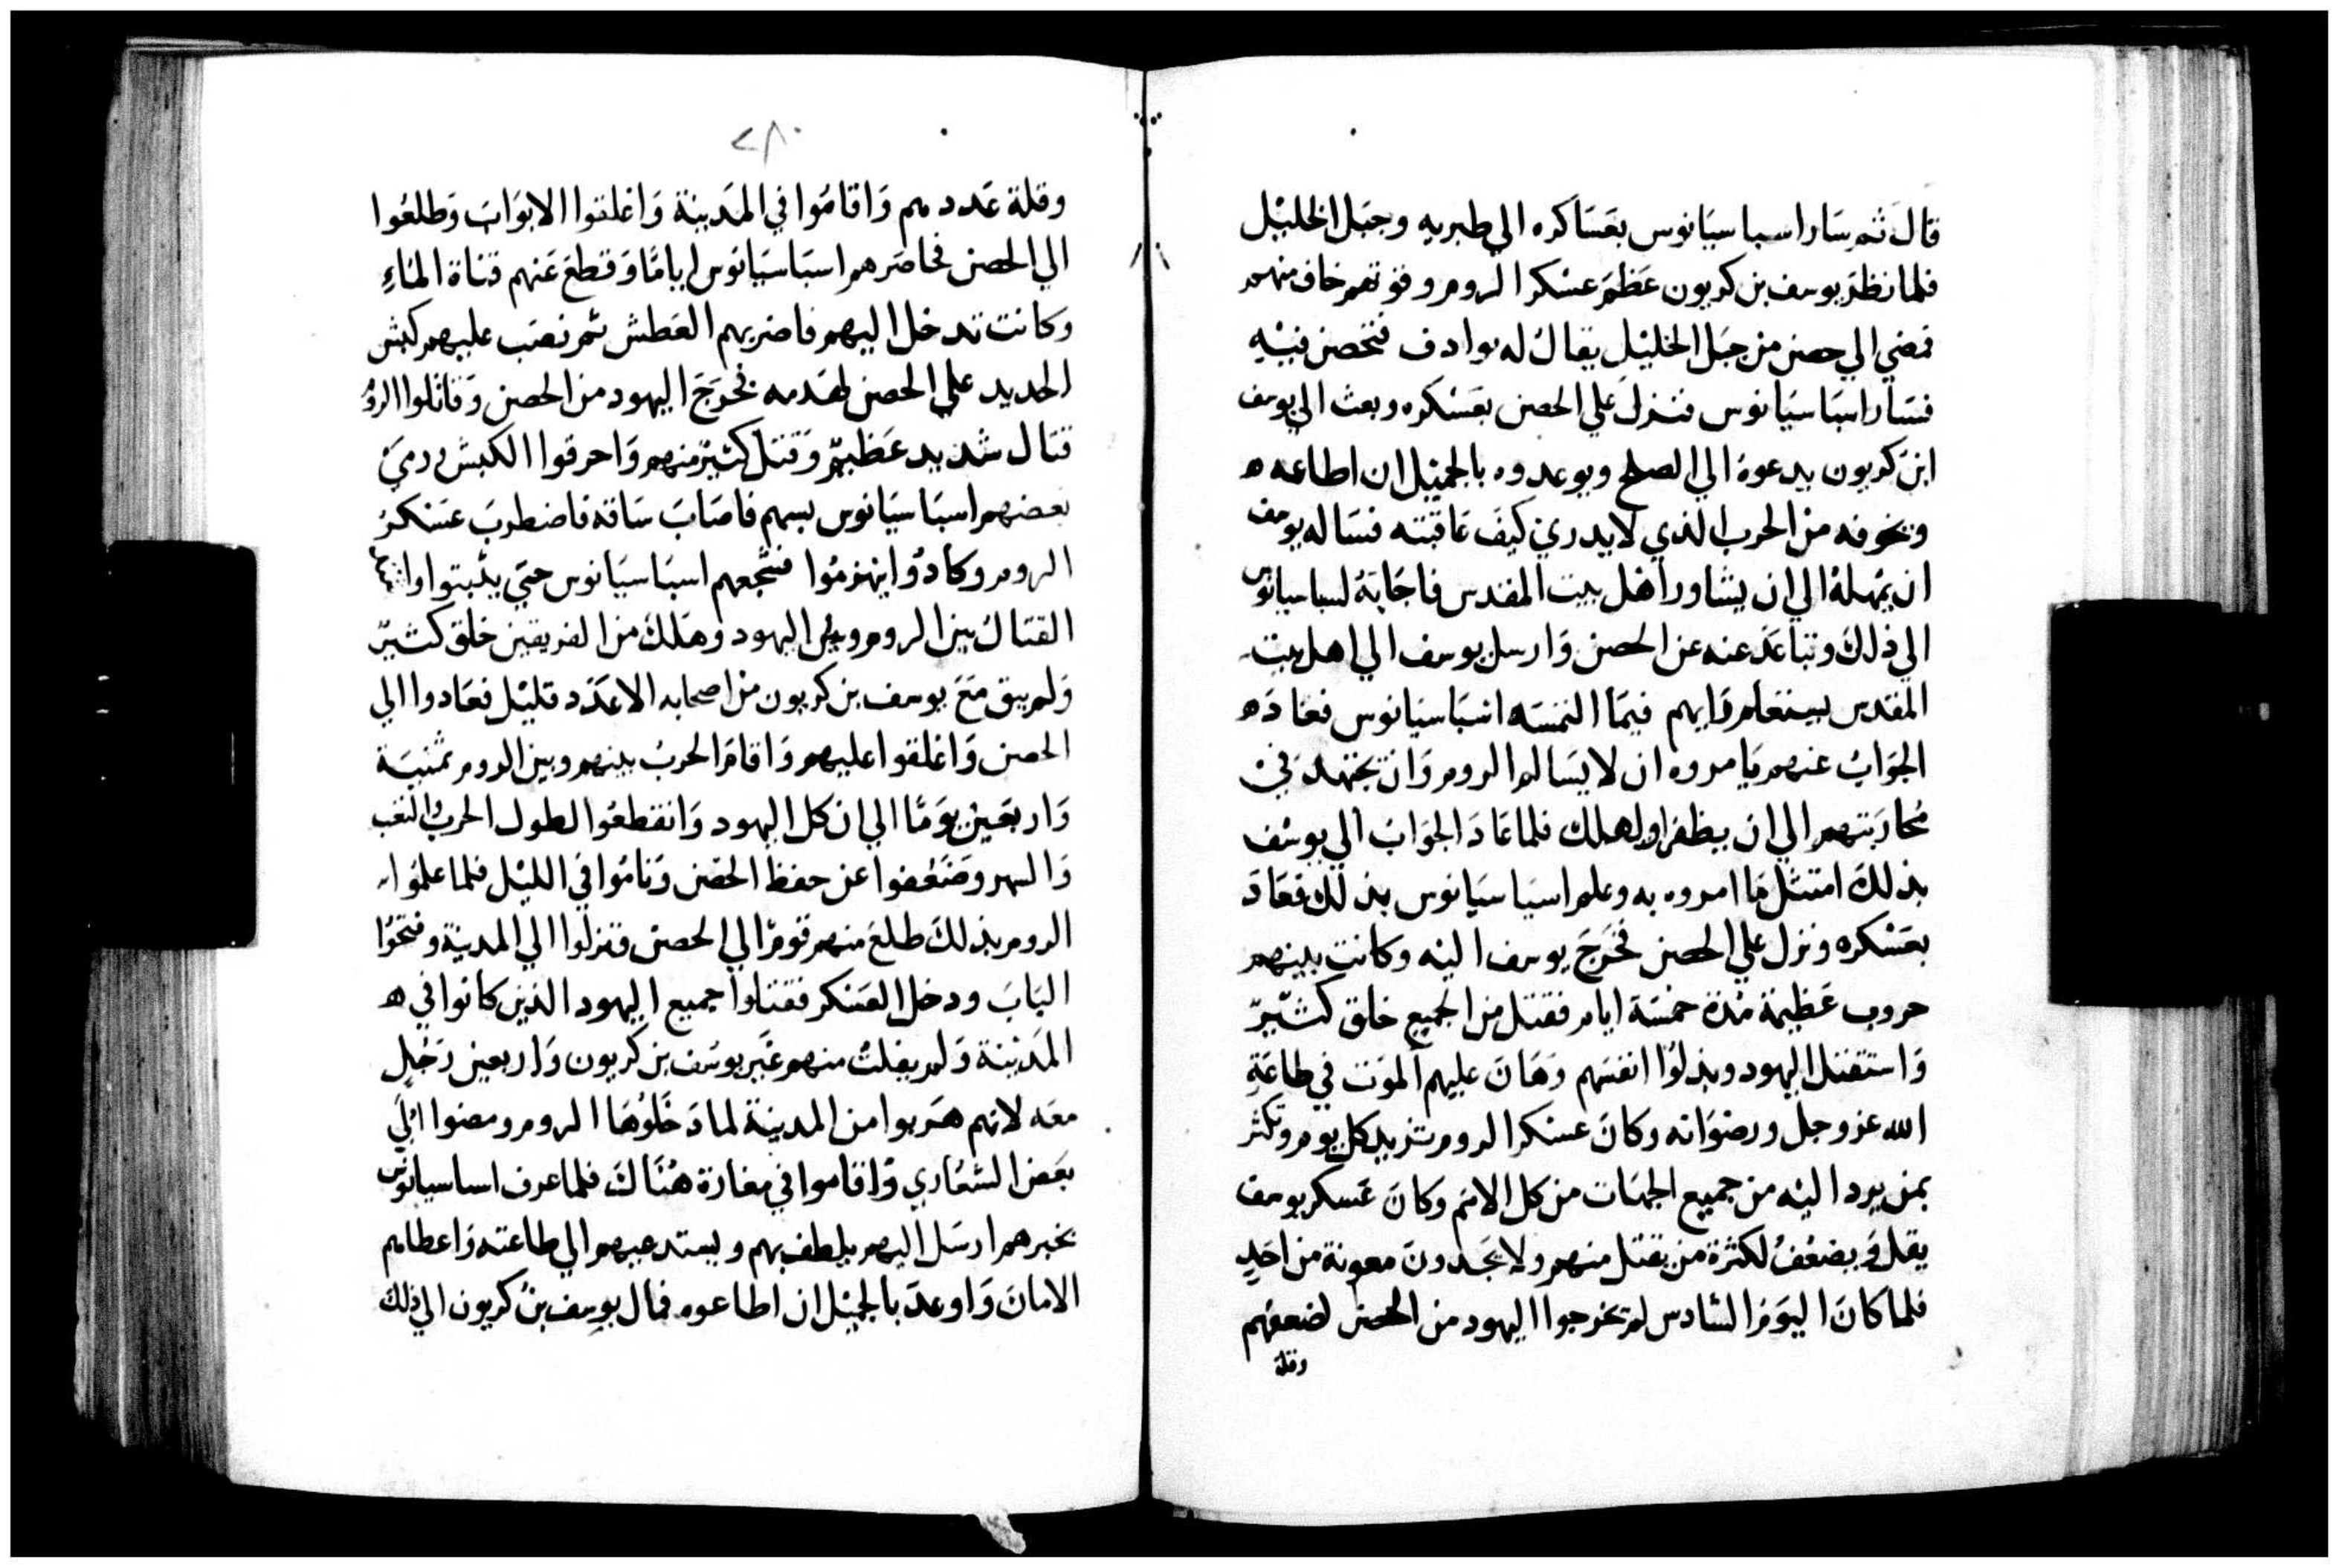 قال ثم سار اسباسيانوس بعساكره الي طبريه وجبل الخليل
فلما نظر يوسف بن كريون عظم عسكر الروم وقوتهم خاف منهم
فمضي الي حصن من جبل الخليل يقال له يوادف فتحصن فيه
فسار اسباسيانوس فنزل علي الحصن بعسكره وبعث الي يوسف
ابن كريون يدعوة الي الصلح ويوعدوه بالجميل ان اطاعه ه
ويخوفه من الحرب الذي لا يدري كيف عاقبته فساله يوسف
ان يمهلهُ الي ان يشاور اهل بيت المقدس فاجابهُ لسباسيانوس
الي ذلك وتباعد عنه عن الحصن وارسل يوسف الي اهل بيت
المقدس يستعلم رايهم فيما التمسه اسباسيانوس فعاد ه
الجواب عنهم يامروه ان لا يسالم الروم وان يجتهد في
محاربتهم الي ان يظفر او يهلك فلما عاد الجواب الي يوسف
بذلك امتثل ما امروه به وعلم اسباسيانوس بذلك فعاد
بعسكره ونزل علي الحصن فخرج يوسف اليه وكانت بينهم
حروب عظيمة مدة خمسة ايام فقتل من الجميع خلق كثير
واستقتل اليهود وبذلوا انفسهم وهان عليهم الموت في طاعة
الله عز وجل ورضوانه وكان عسكر الروم تزيد كل يوم وتكثر
بمن يرد اليه من جميع الجهات من كل الامم وكان عسكر يوسف
يقل ويضعف لكثرة من يقتل منهم ولا يجدون معونة من احد
فلما كان اليوم السادس لم تخرجوا اليهود من الحصن لضعفهم
وقلة
٢٨٠
وقلة عددهم واقاموا في المدينة واغلقوا الابواب وطلعوا
الي الحصن فحاصرهم اسباسيانوس اياما وقطع عنهم قناة الماء
وكانت تدخل اليهم فاضر بهم العطش ثم نصب عليهم كبش
الحديد علي الحصن لهدمه فخرج اليهود من الحصن وقاتلوا الرو
قتال شديد عظيم وقتل كثير منهم واحرقوا الكبش ورمي
بعضهم اسباسيانوس بسهم فاصاب ساقه فاضطرب عسكر
الروم وكادوا ينهزموا فشجعهم اسباسيانوس حتي يثبتوا
القتال بين الروم وبين اليهود وهلك من الفريقين خلق كثير
ولم يبق مع يوسف بن كريون من اصحابه الا عدد قليل فعادوا الي
الحصن واغلقوا عليهم واقام الحرب بينهم وبين الروم ثمنية
واربعين يوما الي ان كل اليهود وانقطعوا لطول الحرب والتعب
والسهر وضعفوا عن حفظ الحصن وناموا في الليل فلما علموا
الروم بذلك طلع منهم قوم الي الحصن ونزلوا الي المدينة وفتحوا
الباب ودخل العسكر فقتلوا جميع اليهود الذين كانوا في ه
المدينة ولم يفلت منهم غير يوسف بن كريون واربعين رجل
معه لانهم هربوا من المدينة لما دخلوها الروم ومضوا الي
بعض الشعاري واقاموا في مغارة هناك فلما عرف اساسيانوس
بخبرهم ارسل اليهم يلطف بهم ويستدعيهم الي طاعته واعطاهم
الامان واوعد بالجميل ان اطاعوه فمال يوسف بن كريون الي ذلك